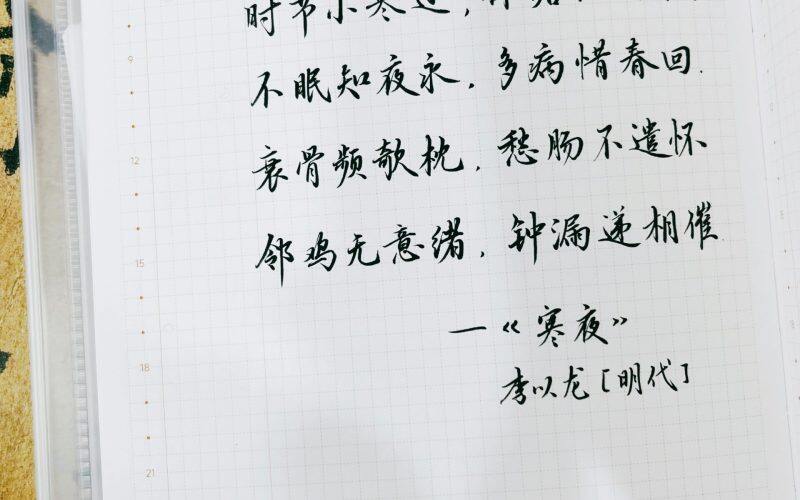 时节小寒近，
不眠知夜永，多病惜春回.
衰骨频欹枕，愁肠不遣怀
邻鸡无意绪，钟漏递相催
—《寒夜》
李以龙[明代]
9
12
15
18
21